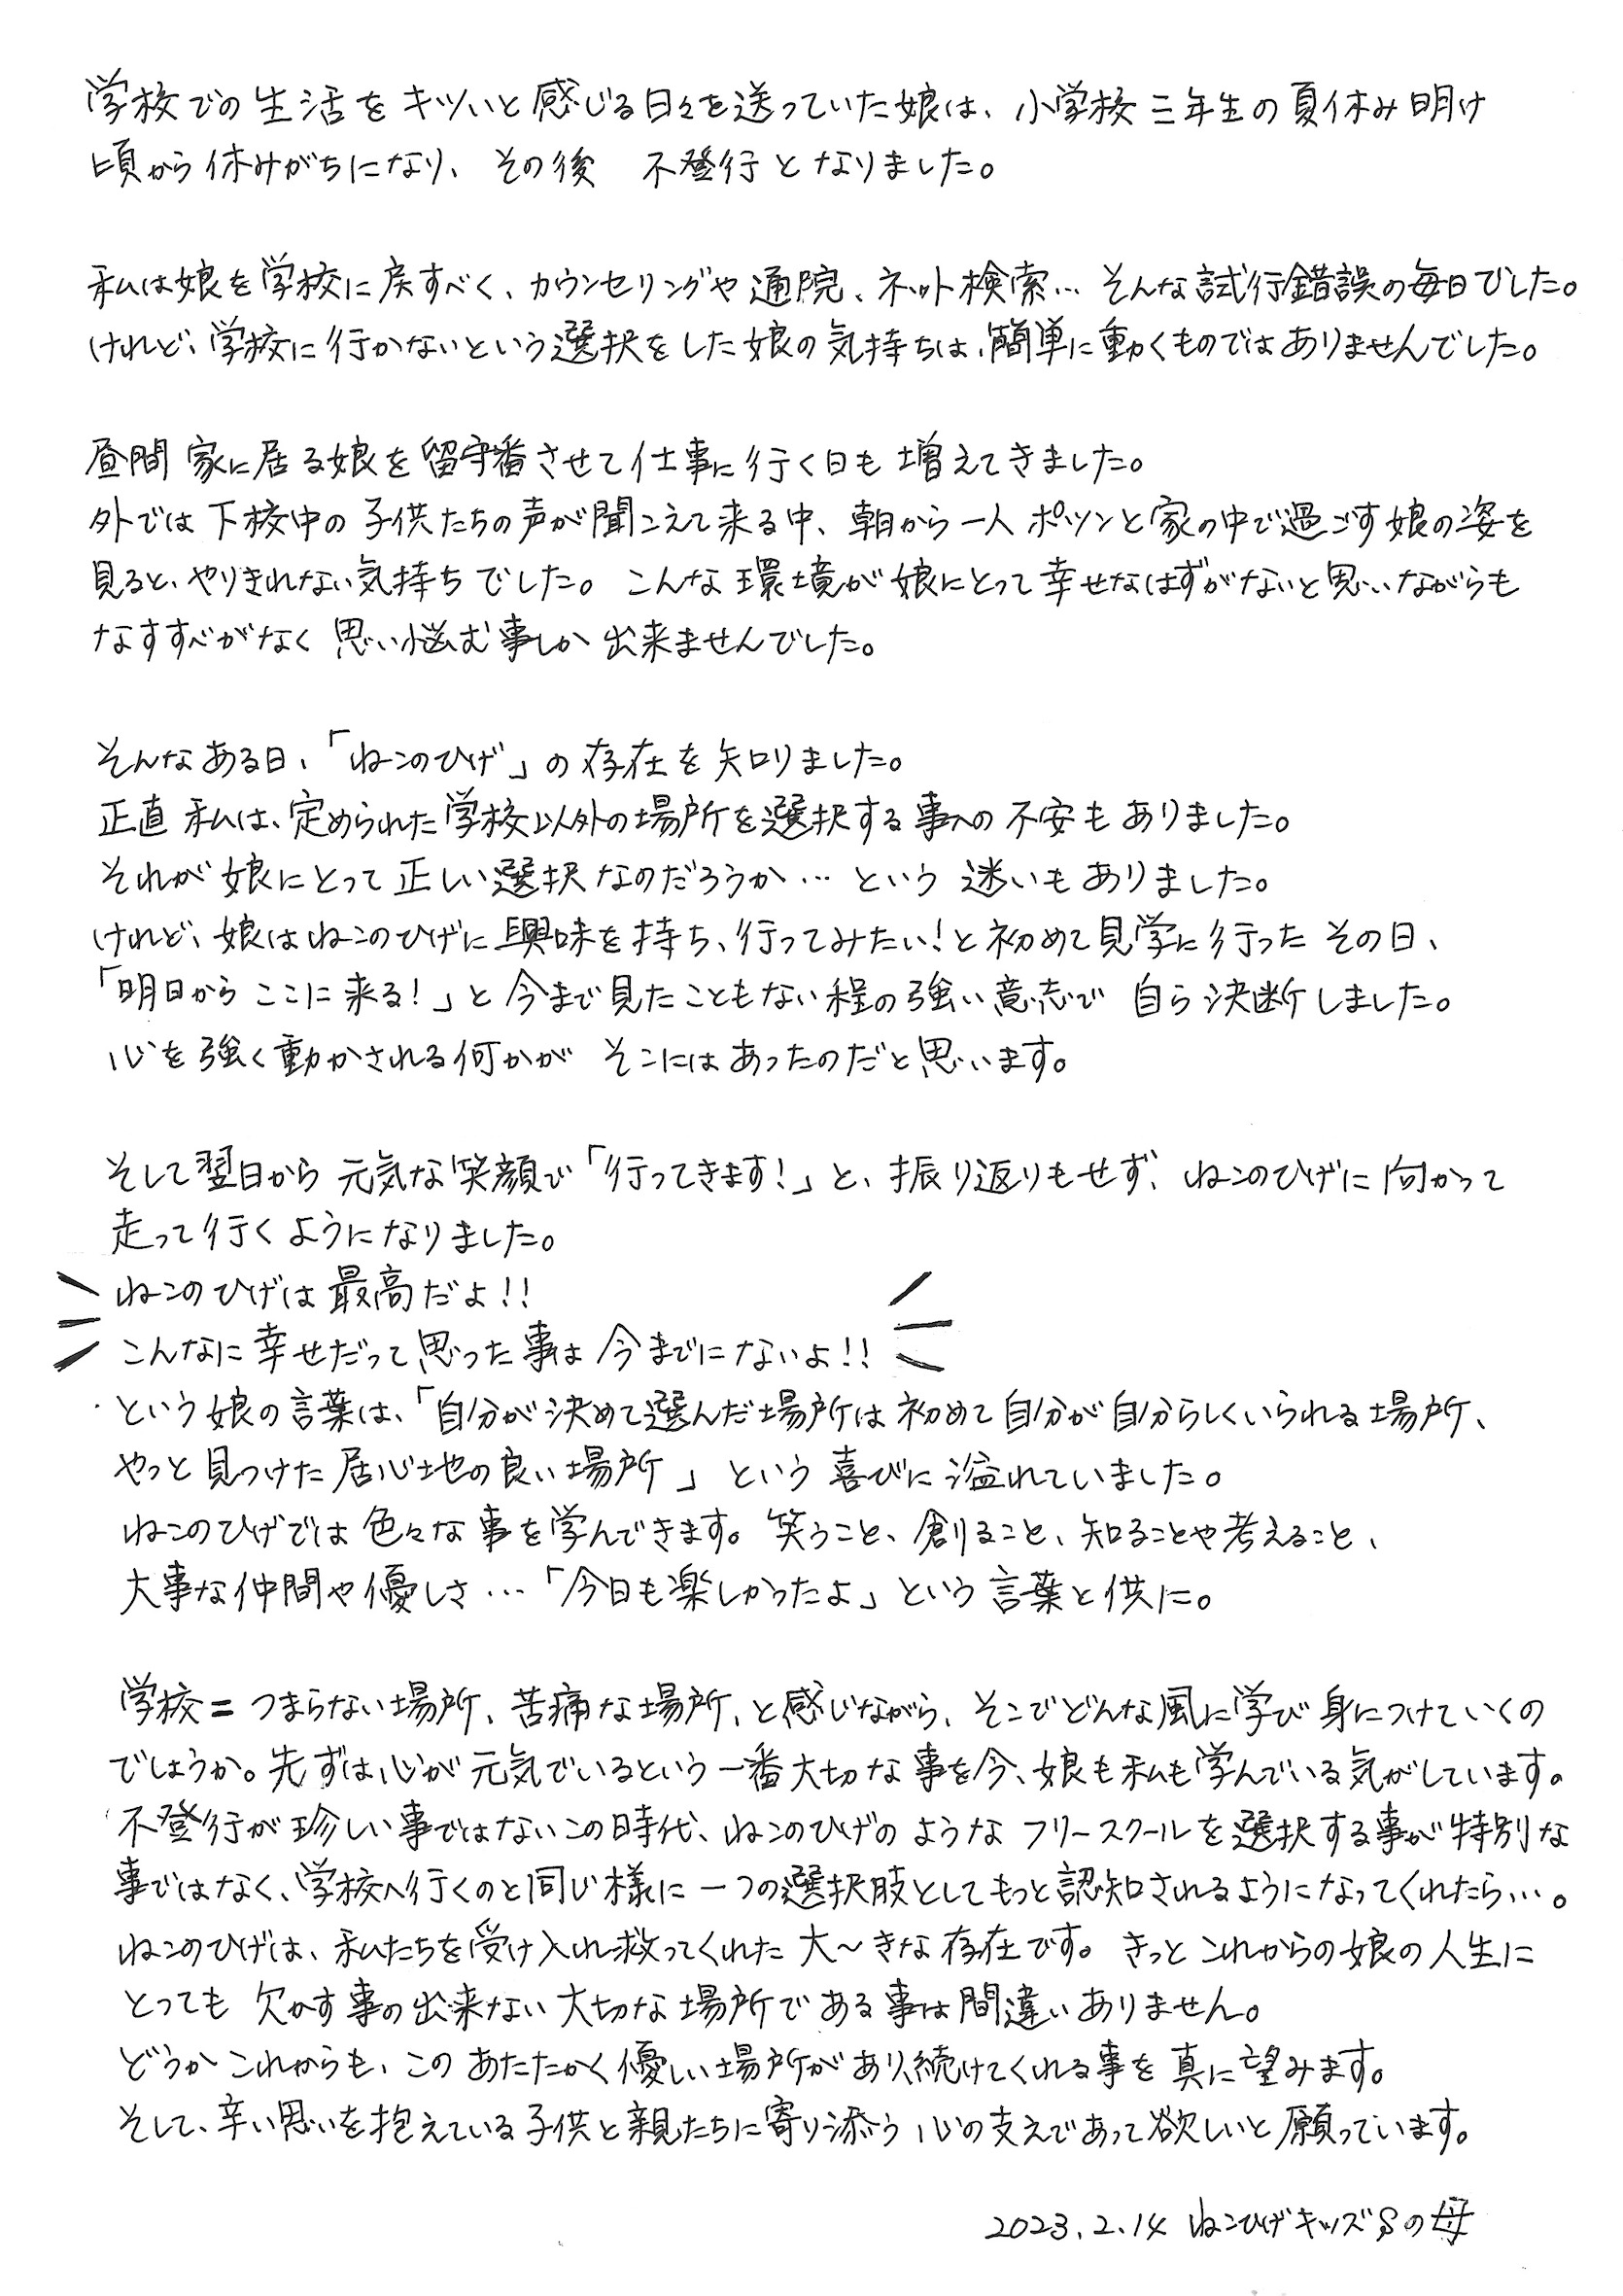 学校での生活をキツいと感じる日々を送っていた娘は、小学校三年生の夏休み明け
頃から休みがちになり、その後 不登行となりました。
私は娘を学校に戻すべく、カウンセリングや通院、ネット検索… そんな試行錯誤の毎日でした。
けれど、学校に行かないという選択をした娘の気持ちは、簡単に動くものではありませんでした。
昼間 家に居る娘を留守番させて仕事に行く日も増えてきました。
外では下校中の子供たちの声が聞こえて来る中、朝から一人ポツンと家の中で過ごす娘の姿を
見ると、やりきれない気持ちでした。こんな環境が娘にとって幸せなはずがないと思いながらも
なすすべがなく 思い悩む事しか出来ませんでした。
そんなある日、「ねこのひげ」の存在を知りました。
正直 私は、定められた学校以外の場所を選択する事への不安もありました。
それが娘にとって正しい選択なのだろうか… という 迷いもありました。
けれど、娘はねこのひげに興味を持ち、行ってみたい!と初めて見学に行った その日、
「明日から ここに来る!」と今まで見たこともない程の強い意志で 自ら決断しました。
心を強く動かされる何かが そこにはあったのだと思います。
そして翌日から 元気な笑顔で「行ってきます!」と、振り返りもせず、ねこのひげに向かって
走って行くようになりました。
ねこのひげは最高だよ!!
こんなに幸せだって思った事は今までにないよ!!
という娘の言葉は、「自分が決めて選んだ場所は初めて自分が自分らしくいられる場所、
やっと見つけた居心地の良い場所」という喜びに溢れていました。
ねこのひげでは色々な事を学んできます。笑うこと、創ること、知ることや考えること、
大事な仲間や優しさ…「今日も楽しかったよ」という言葉と供に。
学校=つまらない場所、苦痛な場所、と感じながら、そこでどんな風に学び身につけていくの
でしょうか。先ずは心が元気でいるという一番大切な事を今、娘も私も学んでいる気がしています。
不登行が珍しい事ではないこの時代、ねこのひげのようなフリースクールを選択する事が特別な
事ではなく、学校へ行くのと同じ様に一つの選択肢としてもっと認知されるようになってくれたら…。
ねこのひげは、私たちを受け入れ救ってくれた大〜きな存在です。きっとこれからの娘の人生に
とっても 欠かす事の出来ない大切な場所である事は間違いありません。
どうかこれからも、このあたたかく優しい場所があり続けてくれる事を真に望みます。
そして、辛い思いを抱えている子供と親たちに寄り添う心の支えであって欲しいと願っています。
2023.2.14 ねこひげキッズSの母